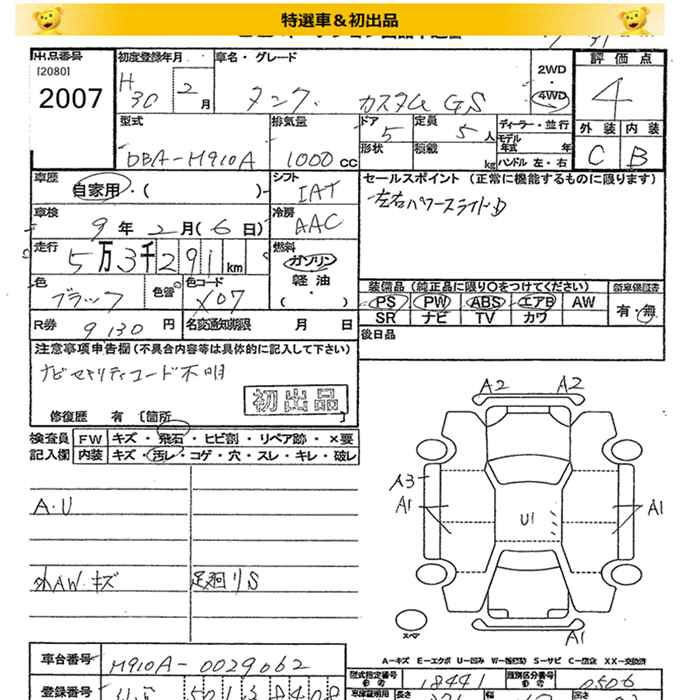 特選車&初出品
出品番号
[2080]
2007
初度登録年月
H30 2月
車名・グレード
タンク カスタムGS
2WD
・
4WD
評価点
4
外装 内装
C B
型式
DBA-M910A
排気量
1000cc
ドア
5
定員
5人
形状
積載
kg
ディーラー・並行
モデル年式 年
ハンドル 左・右
車歴
自家用・( )
シフト
IAT
冷房
AAC
セールスポイント (正常に機能するものに限ります)
左右パワースライドD
車検
9年2月(6日)
走行
5万3千291km
燃料
ガソリン
軽油
・
( )
色
ブラック
色替
色コード
X07
装備品 (純正品に限り○をつけてください)
新車保証書
PS PW ABS エアB AW
SR ナビ TV カワ
有・無
R券 9130円
名変通知期限 月 日
後日品
注意事項申告欄(不具合内容等は具体的に記入して下さい)
ナビセキュリティコード不明
初出品
修復歴 有 〔箇所 〕
検査員記入欄
FW キズ・飛石・ヒビ割・リペア跡・×要
内装 キズ・汚レ・コゲ・穴・スレ・キレ・破レ
A.U
外AW.キズ
足廻りS
A2 A2
A3
A1
A1
U1
A1
スペア
A-キズ E-エクボ U-凹み W-補修跡 S-サビ C-腐食 XX-交換済
車台番号
M910A-0029062
型式指定番号
18441
類別区分番号
0506
登録番号
長さ
幅
高さ